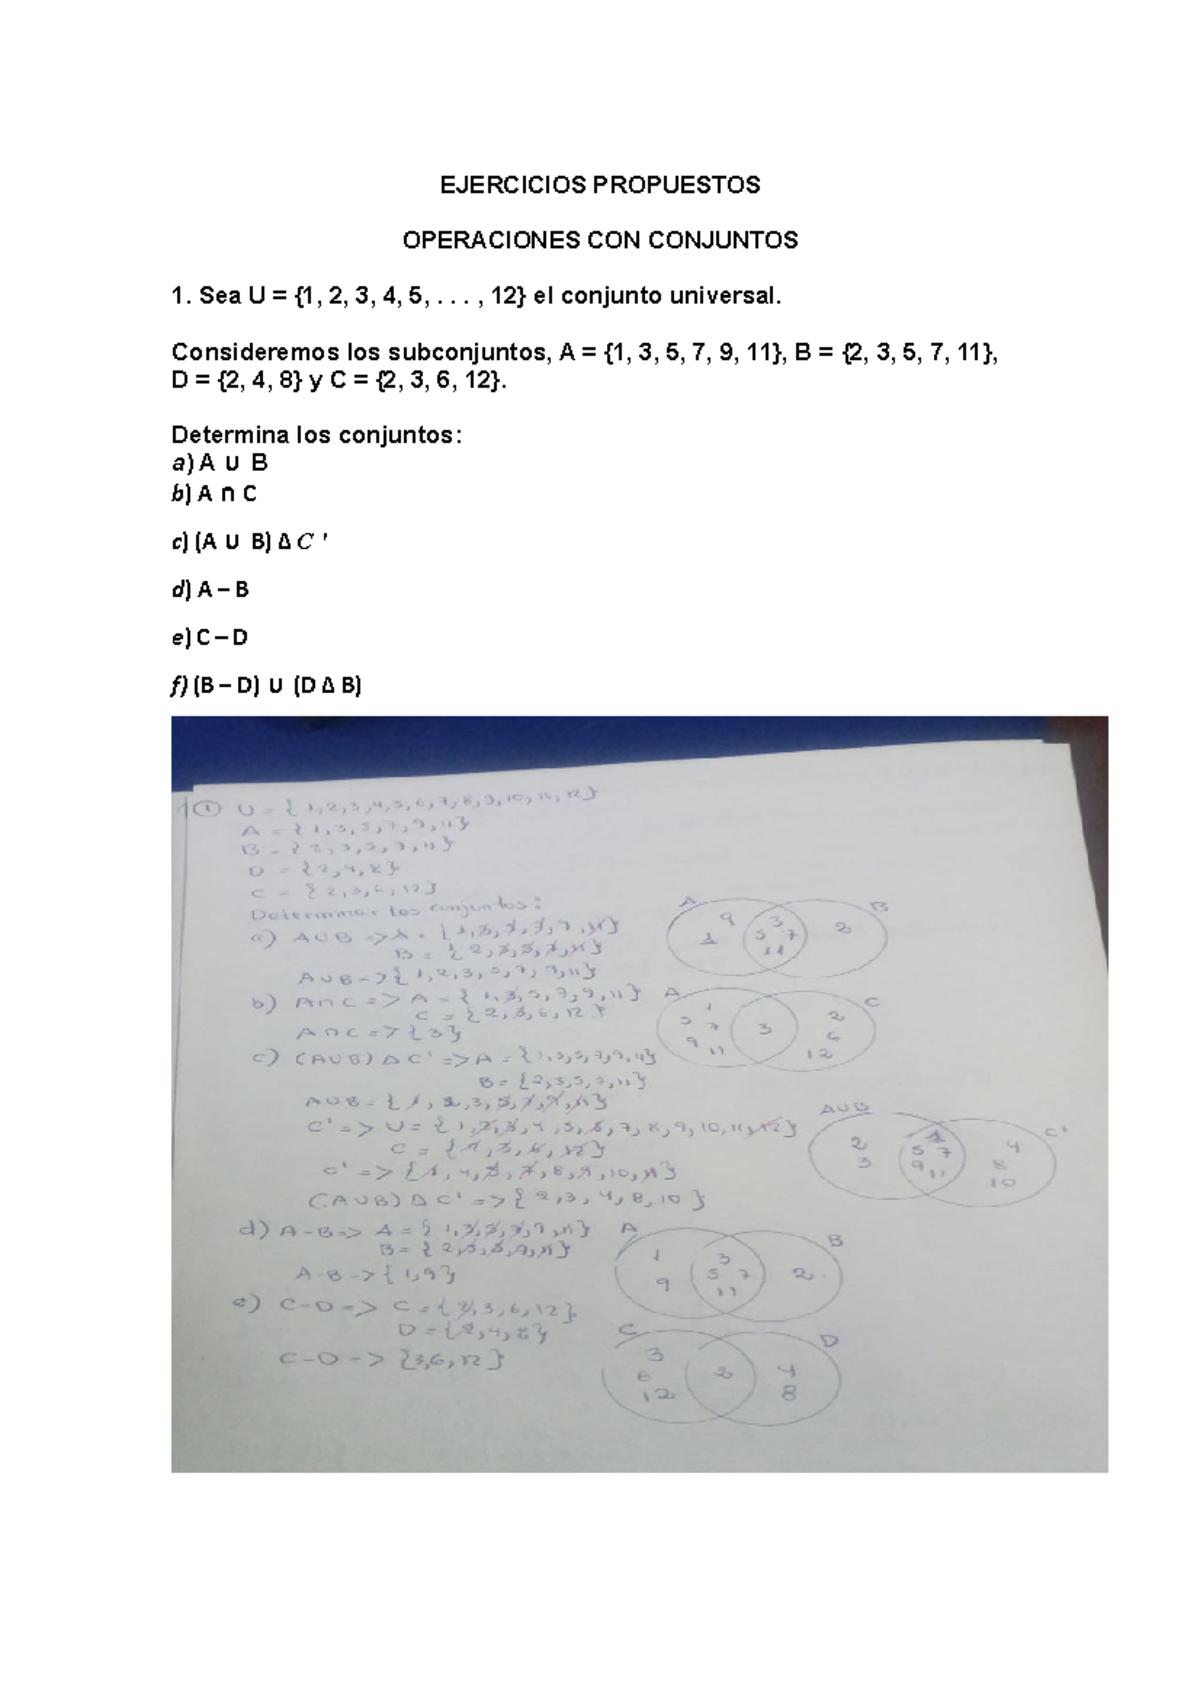 EJERCICIOS PROPUESTOS
OPERACIONES CON CONJUNTOS
1. Sea U = {1, 2, 3, 4, 5, . . . , 12} el conjunto universal.
Consideremos los subconjuntos, A = {1, 3, 5, 7, 9, 11}, B = {2, 3, 5, 7, 11},
D = {2, 4, 8} y C = {2, 3, 6, 12}.
Determina los conjuntos:
a) A ∪ B
b) A ∩ C
c) (A ∪ B) Δ C '
d) A – B
e) C – D
f) (B – D) ∪ (D Δ B)
1 U = { 1,2,3,4,5,6,7,8,9,10,11,12}
A = {1,3,5,7,9,11}
B = {2,3,5,7,11}
D = {2,4,8}
C = {2,3,6,12}
Determinar los conjuntos:
a) A∪B => A = {1,3,5,7,9,11}
B = {2,3,5,7,11}
A∪B -> {1,2,3,5,7,9,11}
A B
9 3
1 5 7 2
11
b) A∩C => A = {1,3,5,7,9,11}
C = {2,3,6,12}
A∩C => {3}
A C
1 2
5 7 3 6
9 11 12
c) (A∪B) Δ C' => A = {1,3,5,7,9,11}
B = {2,3,5,7,11}
A∪B = {1,2,3,5,7,9,11}
C' => U = {1,2,3,4,5,6,7,8,9,10,11,12}
C = {2,3,6,12}
C' => {1,4,5,7,8,9,10,11}
(A∪B) Δ C' => {2,3,4,8,10}
A∪B C'
2 1 4
3 5 7 8
9 11 10
d) A-B => A = {1,3,5,7,9,11}
B = {2,3,5,7,11}
A-B -> {1,9}
A B
1 3
9 5 7 2
11
e) C-D => C = {2,3,6,12}
D = {2,4,8}
C-D -> {3,6,12}
C D
3 4
6 2 8
12